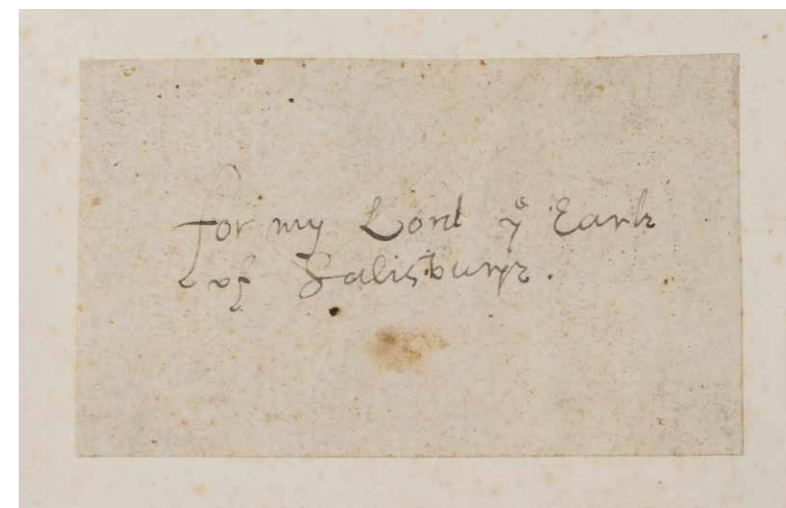 for my Lord yᵉ Earle
of Salisburye.